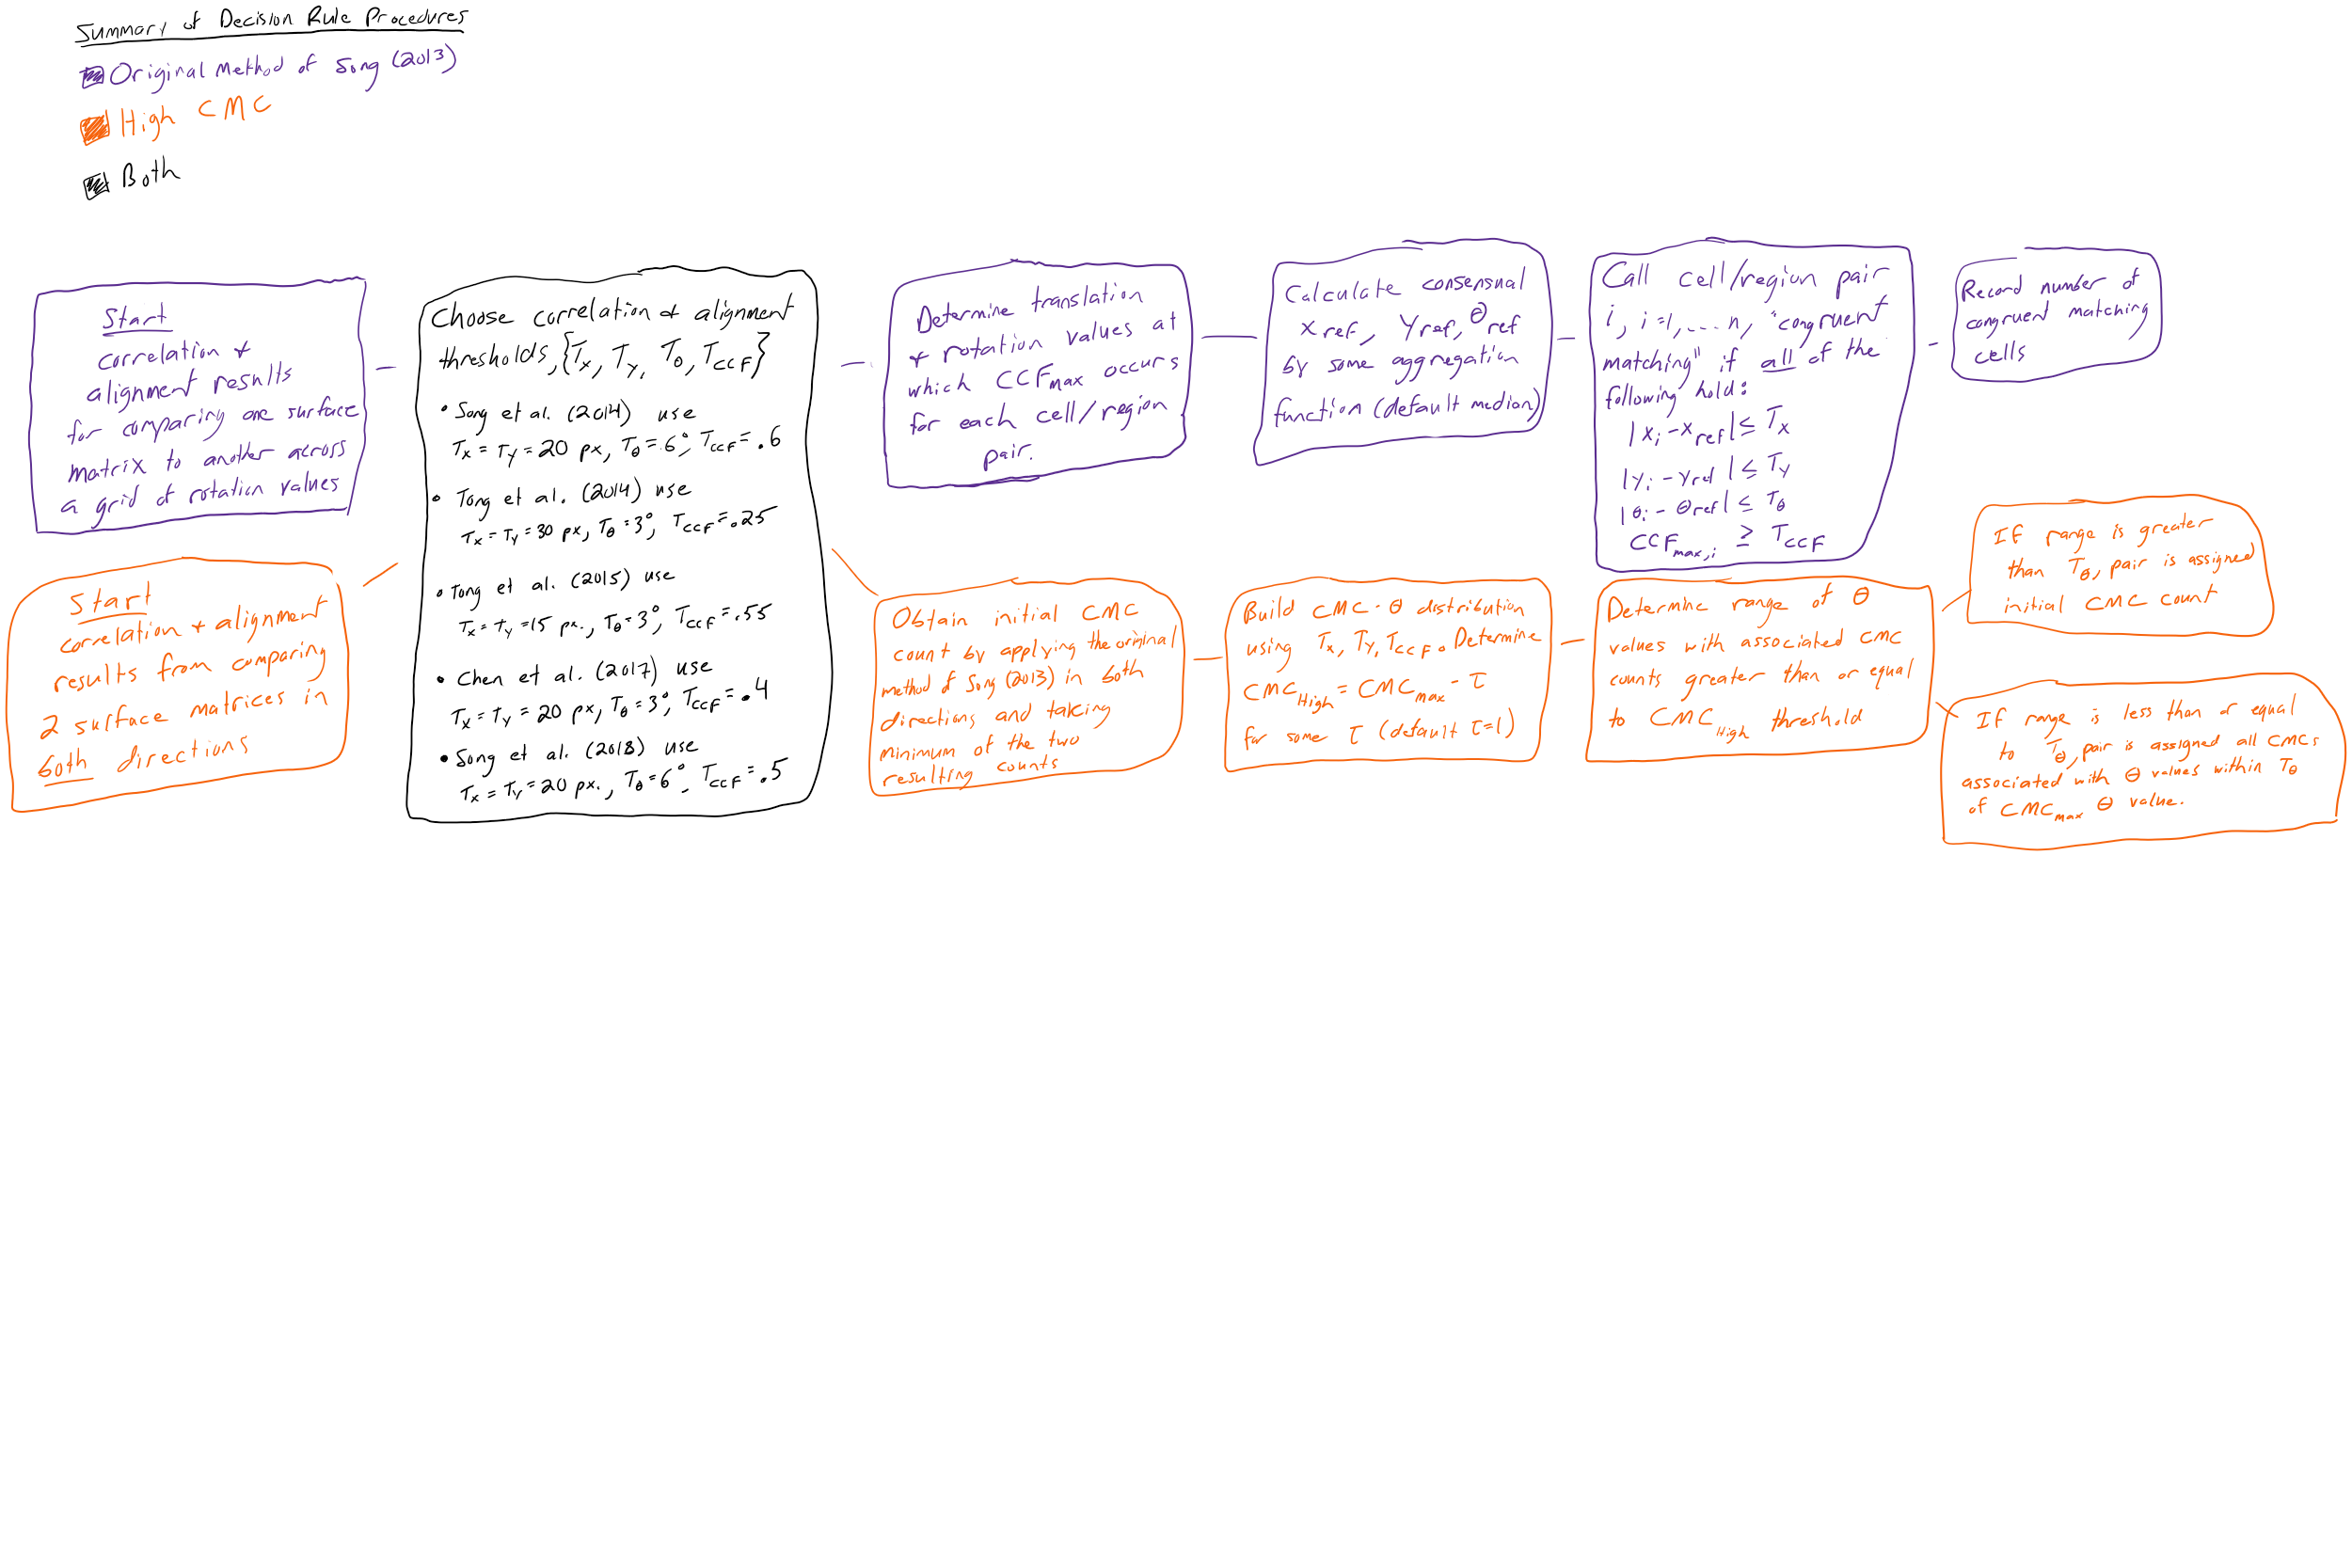 Summary of Decision Rule Procedures
Original Method of Song (2013)
High CMC
Both
Start
correlation +
alignment results
for comparing one surface
matrix to another across
a grid of rotation values
Start
correlation + alignment
results from comparing
2 surface matrices in
both directions
Choose correlation + alignment
thresholds, {Tx, Ty, Tθ, TCCF}
• Song et al. (2014) use
Tx = Ty = 20 px, Tθ = 6°, TCCF = .6
• Tong et al. (2014) use
Tx = Ty = 30 px, Tθ = 3°, TCCF = .25
• Tong et al. (2015) use
Tx = Ty = 15 px., Tθ = 3°, TCCF = .55
• Chen et al. (2017) use
Tx = Ty = 20 px, Tθ = 3°, TCCF = .4
• Song et al. (2018) use
Tx = Ty = 20 px., Tθ = 6°, TCCF = .5
Determine translation
+ rotation values at
which CCFmax occurs
for each cell/region
pair.
Calculate consensual
xref, yref, θref
by some aggregation
function (default median)
Call cell/region pair
i, i=1,...n, "congruent
matching" if all of the
following hold:
|xi - xref| ≤ Tx
|yi - yref| ≤ Ty
|θi - θref| ≤ Tθ
CCFmax,i ≥ TCCF
Record number of
congruent matching
cells
Obtain initial CMC
count by applying the original
method of Song (2013) in both
directions and taking
minimum of the two
resulting counts
Build CMC-θ distribution
using Tx, Ty, TCCF. Determine
CMCHigh = CMCmax - τ
for some τ (default τ=1)
Determine range of θ
values with associated CMC
counts greater than or equal
to CMCHigh threshold
If range is greater
than Tθ, pair is assigned
initial CMC count
If range is less than or equal
to Tθ, pair is assigned all CMCs
associated with θ values within Tθ
of CMCmax θ value.